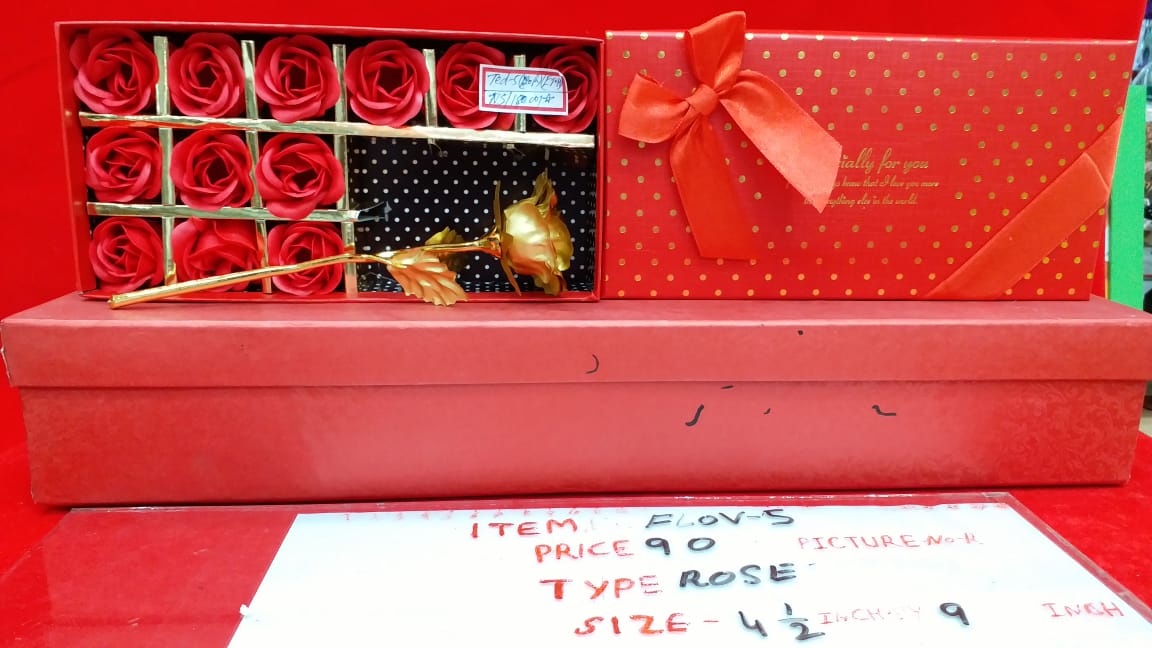 ially for you
know that I love you more
anything else in the world.
ITEM FLOV-5
PRICE 90 PICTURE-No-R
TYPE ROSE
SIZE - 4 1/2 INCH 9 INCH